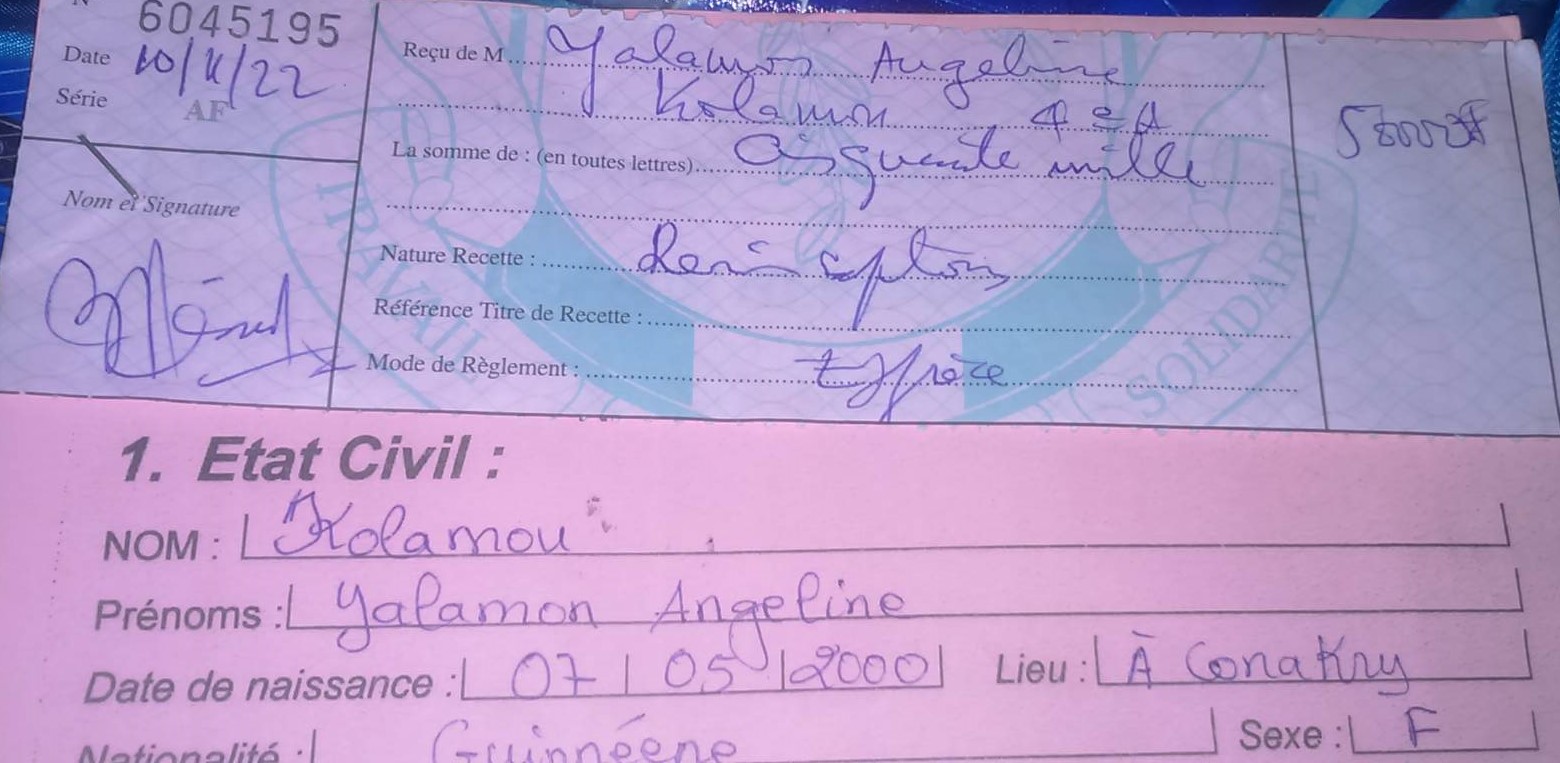 N° 6045195
Date 10/11/22
Série AF
Nom et Signature
Reçu de M Yalamon Angeline
Kolamou 4eA
La somme de : (en toutes lettres) Cinquante mille
Nature Recette : Reinscription
Référence Titre de Recette :
Mode de Règlement : Espèce
50000F
TRAVAIL
SOLIDARITE
1. Etat Civil :
NOM : Kolamou
Prénoms : Yalamon Angeline
Date de naissance : 07 | 05 | 2000 Lieu : À Conakry
Nationalité : Guinnéene Sexe : F